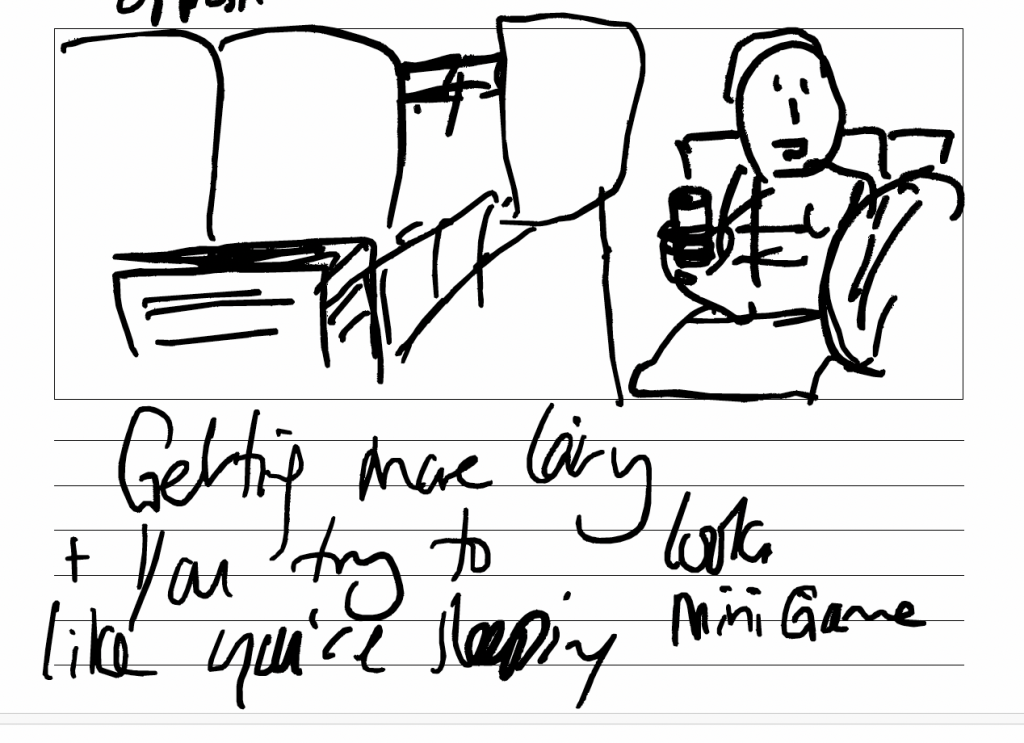 Getting more lairy
+ You try to look
like you're sleeping Mini Game